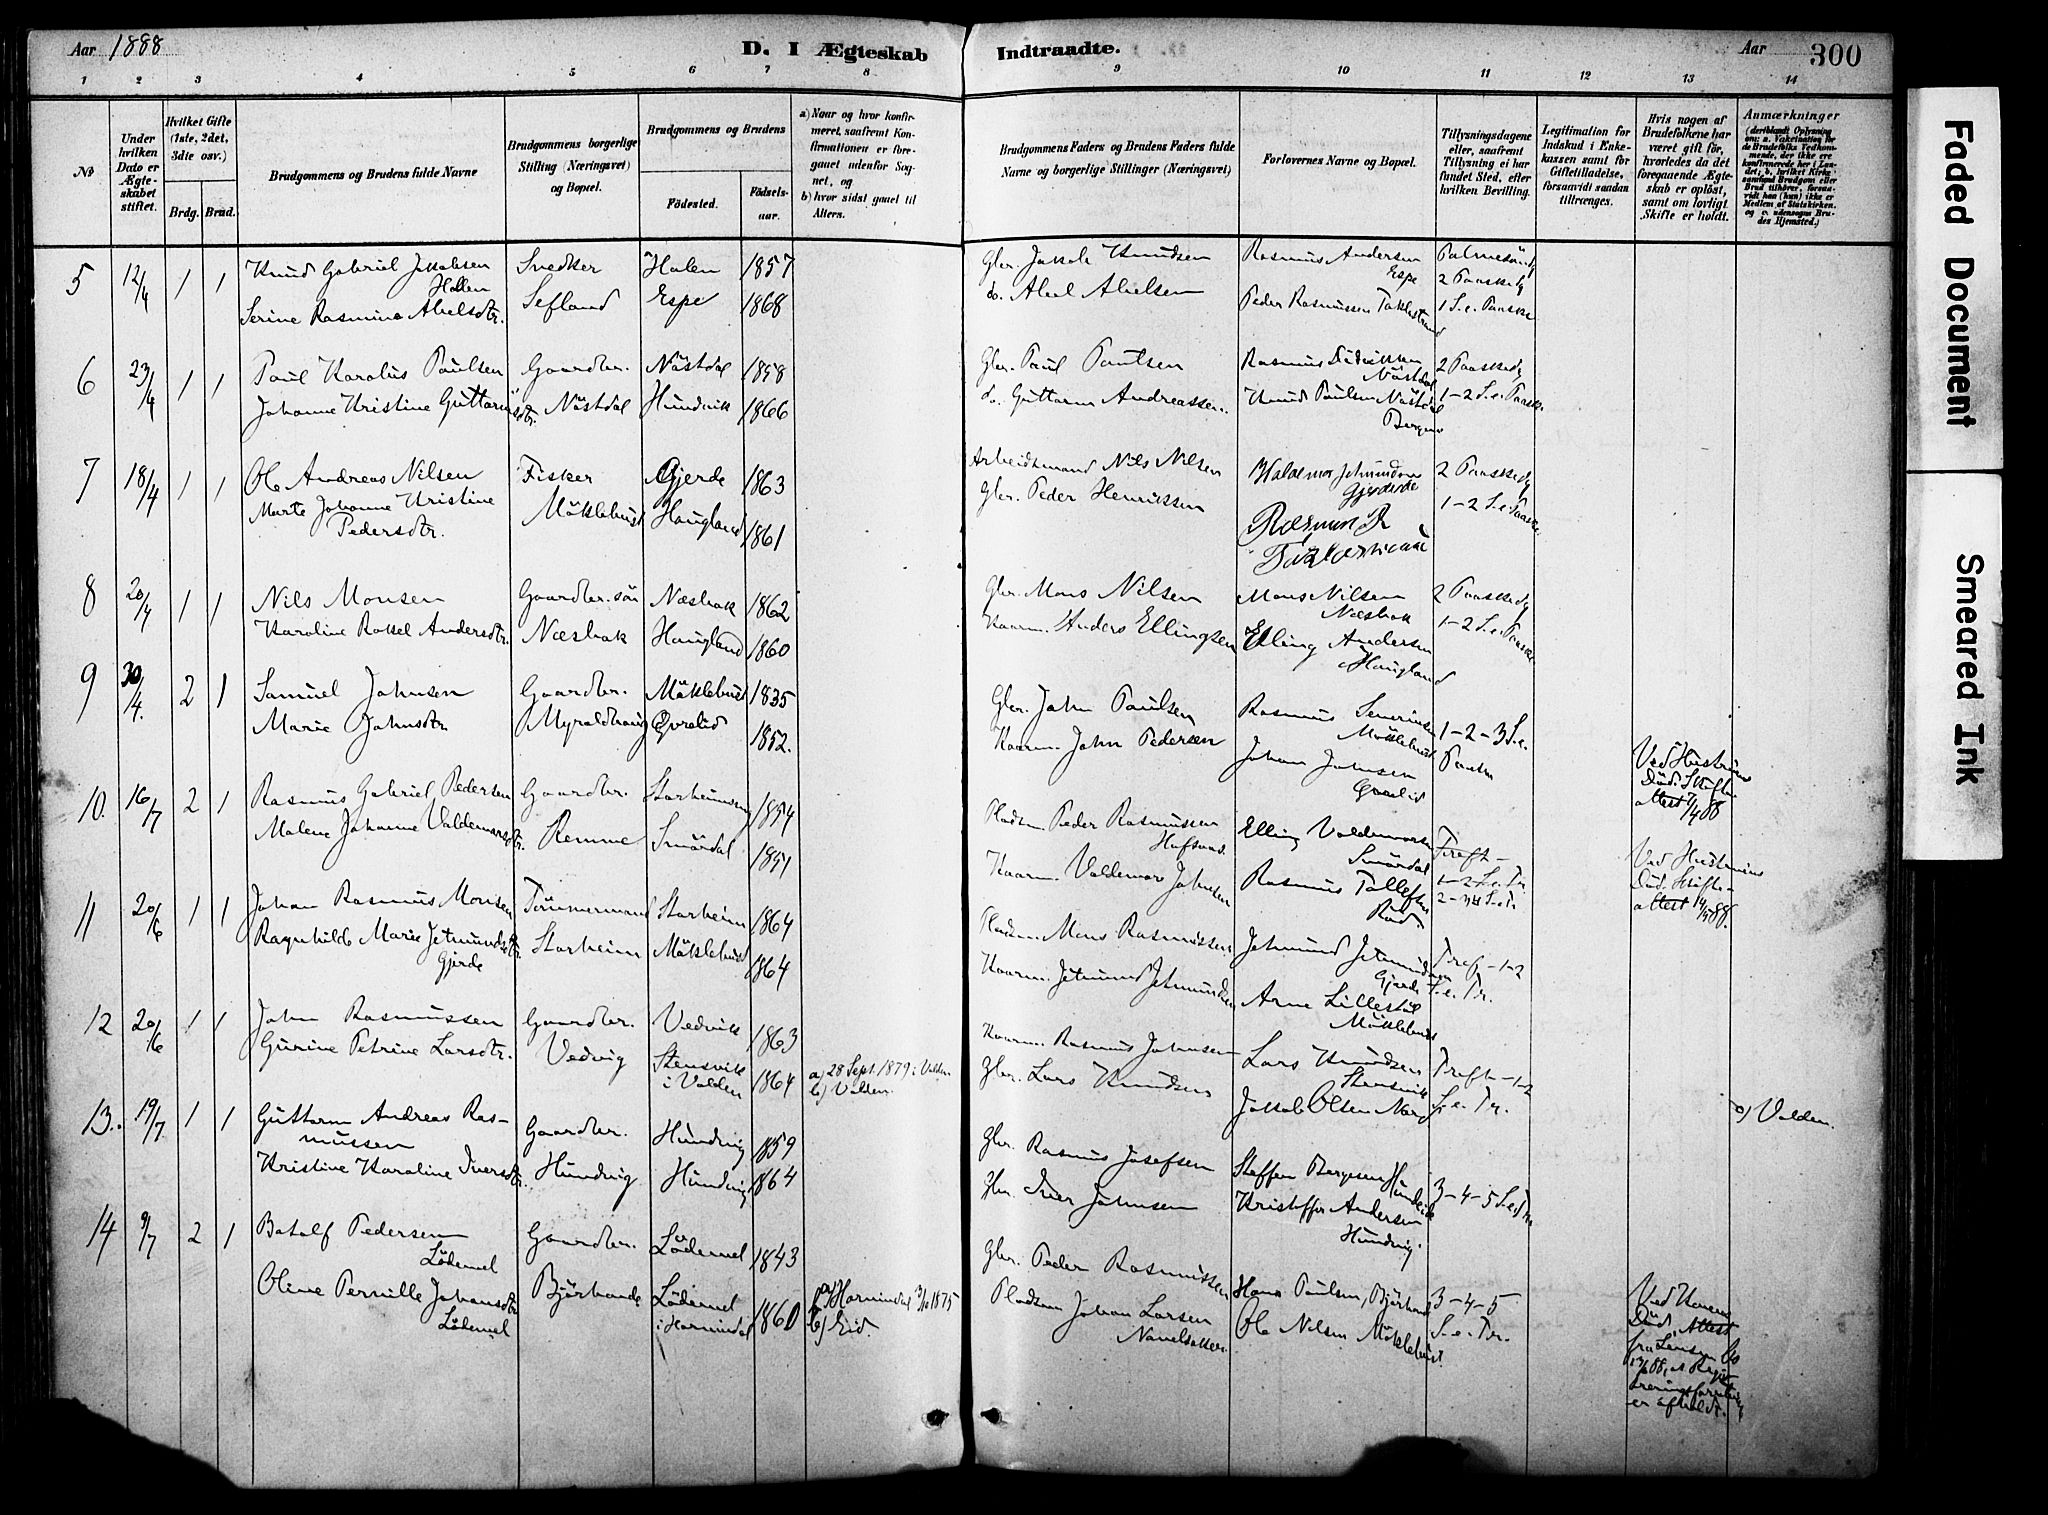 Aar 1888
D. I Ægteskab
Indtraadte.
Aar
300
1 2 3 4 5 6 7 8
9 10 11 12 13 14
№
Under hvilken Dato er Ægteskabet stiftet.
Hvilket Gifte (1ste, 2det, 3die osv.)
Brdg. Brud.
Brudgommens og Brudens fulde Navne
Brudgommens borgerlige Stilling (Næringsvei) og Bopæl.
Brudgommens og Brudens
Födested.
Födselsaar.
a) Naar og hvor konfirmeret, saafremt Konfirmationen er foregaaet udenfor Sognet, og
b) hvor sidst gaaet til Alters.
Brudgommens Faders og Brudens Faders fulde Navne og borgerlige Stillinger (Næringsvei)
Forlovernes Navne og Bopæl.
Tillysningsdagene eller, saafremt Tillysning ei har fundet Sted, efter hvilken Bevilling.
Legitimation for Indskud i Enkekassen samt for Giftetilladelse, forsaavidt saadan tiltrænges.
Hvis nogen af Brudefolkene har været gift för, hvorledes da det foregaaende Ægteskab er oplöst, samt om lovligt Skifte er holdt.
Anmærkninger
5 12/4 1 1 Knud Gabriel Jakobsen Snedker Halen 1857 Gbr. Jakob Knudsen Rasmus Andersen Palmesönd.
Halen Espe 2 Paaskedg
Serine Rasmine Abelsdtr. Sefland Espe 1868 do. Abel Abelsen Peder Rasmussen Taklestrand 1 S.e. Paaske
6 23/4 1 1 Paul Karolus Paulsen Gaardbr. Nästdal 1858 Gbr. Paul Paulsen Rasmus Didriksen Nästdal 2 Paaskedg
Johanne Kristine Guttormsdtr. Nästdal Hundvik 1866 do. Guttorm Andreassen Knud Paulsen Nästdal 1-2 S.e. Paaske
7 18/4 1 1 Ole Andreas Nilsen Fisker Gjerde 1863 Arbeidsmand Nils Nilsen 2 Paaskedg
Marte Johanne Kristine Pedersdtr. Möklebust Haugland 1861 Gbr. Peder Henriksen 1-2 S.e. Paaske
8 20/4 1 1 Nils Monsen Gaardbr. sön Næsbak 1862 Gbr. Mons Nilsen Mons Nilsen Næsbak 2 Paaskedg
Karoline Rakel Andersdtr. Næsbak Haugland 1860 Kaarm. Anders Ellingsen Elling Andersen Haugland 1-2 S.e. Paaske
9 30/4. 2 1 Samuel Johnsen Gaardbr. Möklebust 1835 Gbr. John Paulsen Rasmus Severinsen Möklebust 1-2-3 S.e.
Marie Johnsdtr Myroldhaug 1852. Kaarm. John Pedersen Johan Johnsen Paaske
Ved Hustruens Död. Skifteattest 7/4 88
10. 16/7 2 1 Rasmus Gabriel Pedersen Gaardbr. 1854 Pladsm. Peder Rasmussen Elling Valdemarsen Smördal Trefh-
Malene Johanne Valdemarsdtr. Remme Smördal 1851 Kaarm. Valdemar Johnsen Rasmus 1-2 S.e. Tr.
Ved Hustruens Död. Skifteattest
11 20/6 1 1 Johan Rasmus Monsen Tömmermand Starheim 1864 Pladsm. Mons Rasmussen Jetmund Jetmundsen Gjerde Trefh-1-2
Ragnhilde Marie Jetmundsdtr. Starheim Möklebust 1864 Kaarm. Jetmund Jetmundsen Arne Lillestöl Möklebust S.e. Tr.
Gjerde
12 20/6 1 1 John Rasmussen Gaardbr. Vedvik 1863 Kaarm. Rasmus Johnsen Lars Knudsen Stensvik Trefh-1-2
Gurine Petrine Larsdtr. Vedvig Stensvik i Valden 1864 a) 28 Sept. 1879 i Valden b) Valden. Gbr. Lars Knudsen Jakob Olsen S.e. Tr.
c) Valden.
13. 19/7 1 1 Guttorm Andreas Rasmussen Gaardbr. Hundvig 1859 Gbr. Rasmus Josefsen Steffen Bergesen Hundvik 3-4-5 S.e.Tr.
Kristine Karoline Iversdtr. Hundvig Hundvig 1864 Gbr. Iver Johnsen Kristoffer Andersen Hundvig.
14 9/7 2 1 Batolf Pedersen Gaardbr. Lödemel 1843 Gbr. Peder Rasmussen Hans Paulsen, Björhand 3-4-5
Lödemel
Oline Pernille Johansdtr. Björhande Lödemel i Hornindal 1860 a) Hornindal 3/10 1875 b) Eid. Pladsm Johan Larsen Ole Nilsen Möklebust S.e. Tr.
Lödemel
Ved Konens Död. Attest fra Lensm.
er afholdt.
Faded Document
Smeared Ink